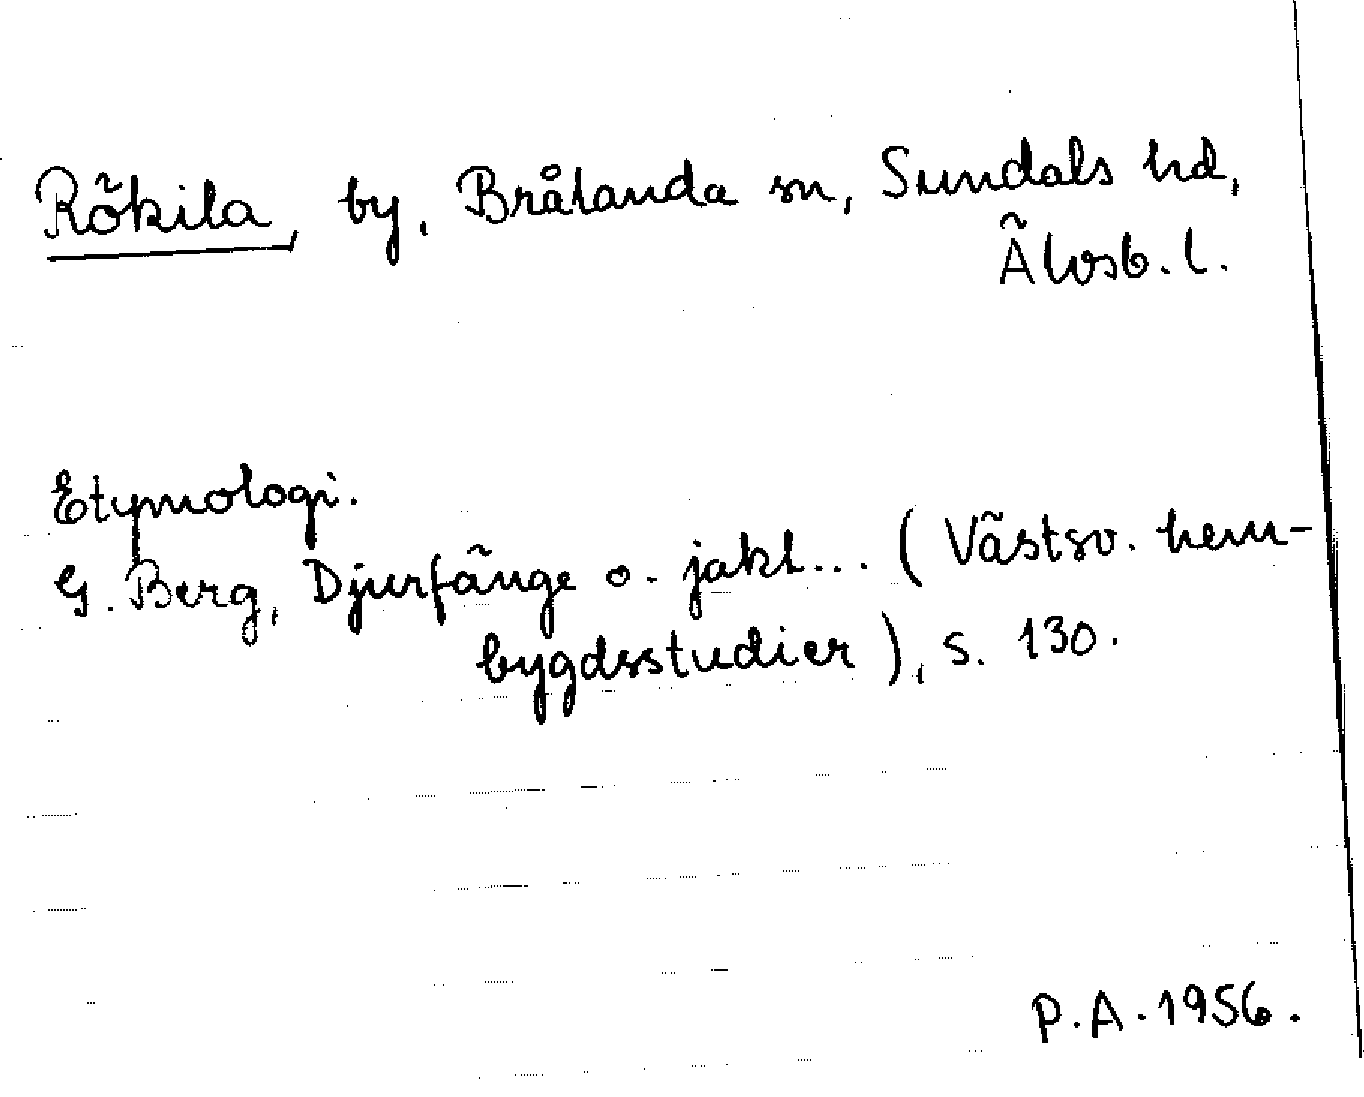 Rökila, by, Brålanda sn, Sundals hd,
Älvsb. l.
Etymologi.
G. Berg, Djurfänge o. jakt... (Västsv. hem-
bygdsstudier), s. 130.
P.A. 1956.